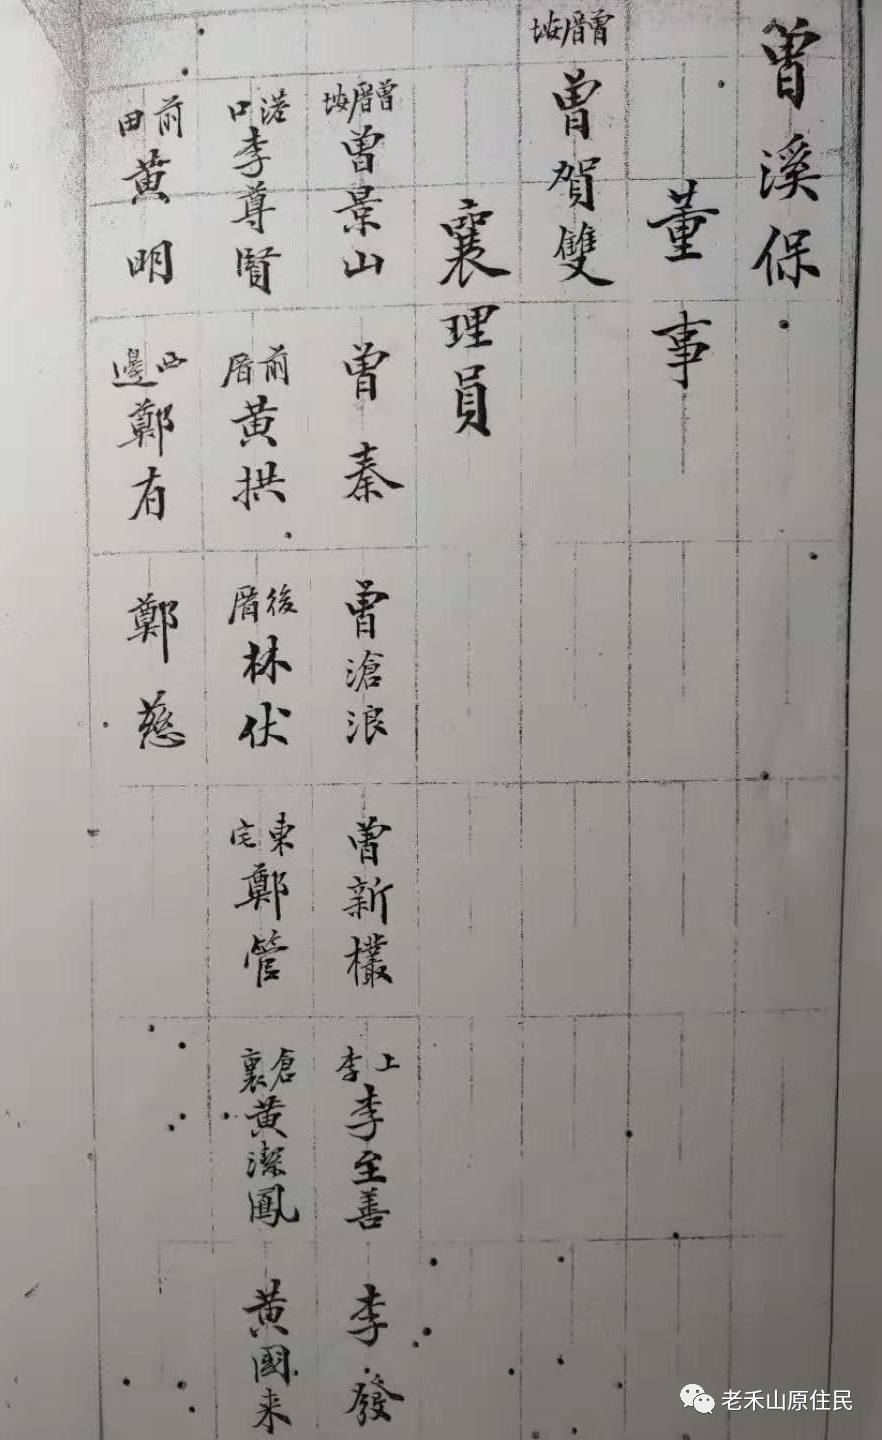 曾溪保
董事
曾厝垵 曾賀雙
襄理員
曾厝垵 曾景山 曾秦 曾滄浪 曾新欉 上李 李至善 李發
港口 李尊賢 前厝 黃拱 後厝 林伏 東宅 鄭管 倉裏 黃潔鳳 黃國来
前田 黃明 西邊 鄭有 鄭慈
老禾山原住民